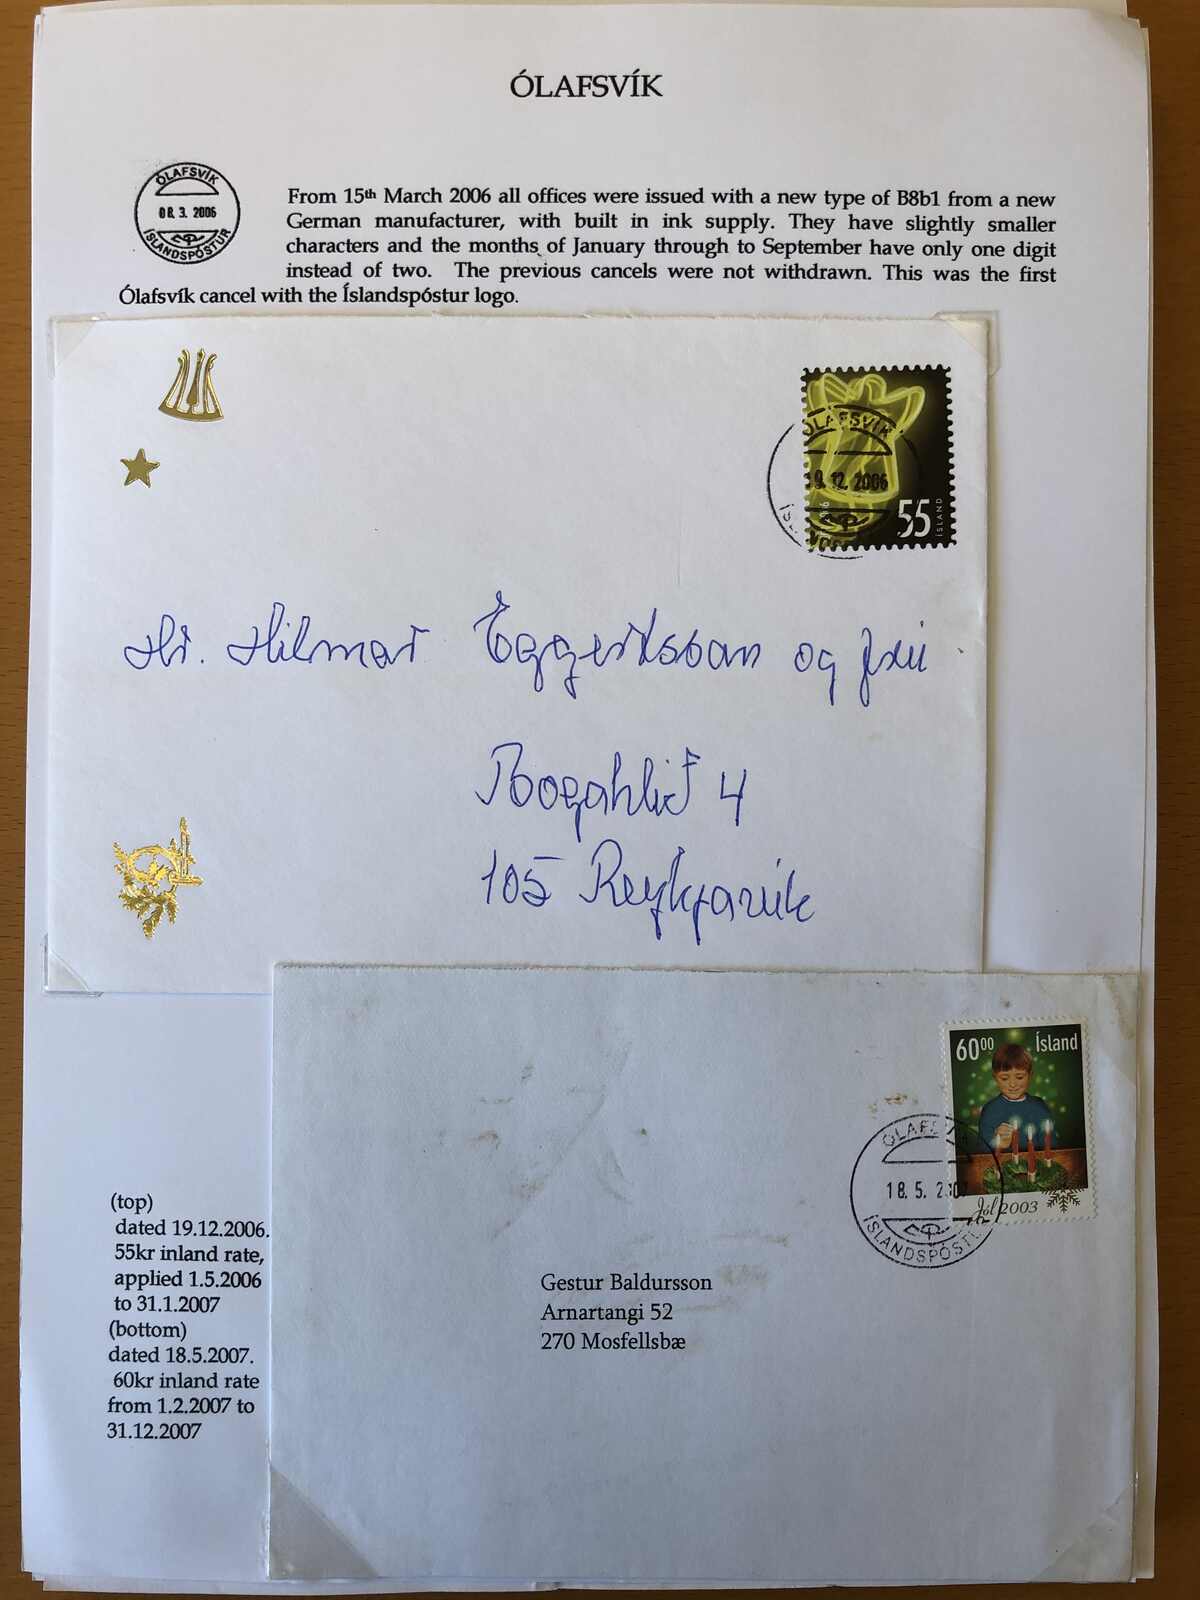 ÓLAFSVÍK
ÓLAFSVÍK
08. 3. 2006
ÍSLANDSPÓSTUR
From 15th March 2006 all offices were issued with a new type of B8b1 from a new
German manufacturer, with built in ink supply. They have slightly smaller
characters and the months of January through to September have only one digit
instead of two. The previous cancels were not withdrawn. This was the first
Ólafsvík cancel with the Íslandspóstur logo.
ÓLAFSVÍK
19. 12. 2006
55
ÍSLAND
Hr. Hilmar Eggertsson og frú
Bogahlíð 4
105 Reykjavík
6000 Ísland
Jól 2003
ÓLAFS
18. 5.
ÍSLANDSPÓSTU
Gestur Baldursson
Arnartangi 52
270 Mosfellsbæ
(top)
dated 19.12.2006.
55kr inland rate,
applied 1.5.2006
to 31.1.2007
(bottom)
dated 18.5.2007.
60kr inland rate
from 1.2.2007 to
31.12.2007